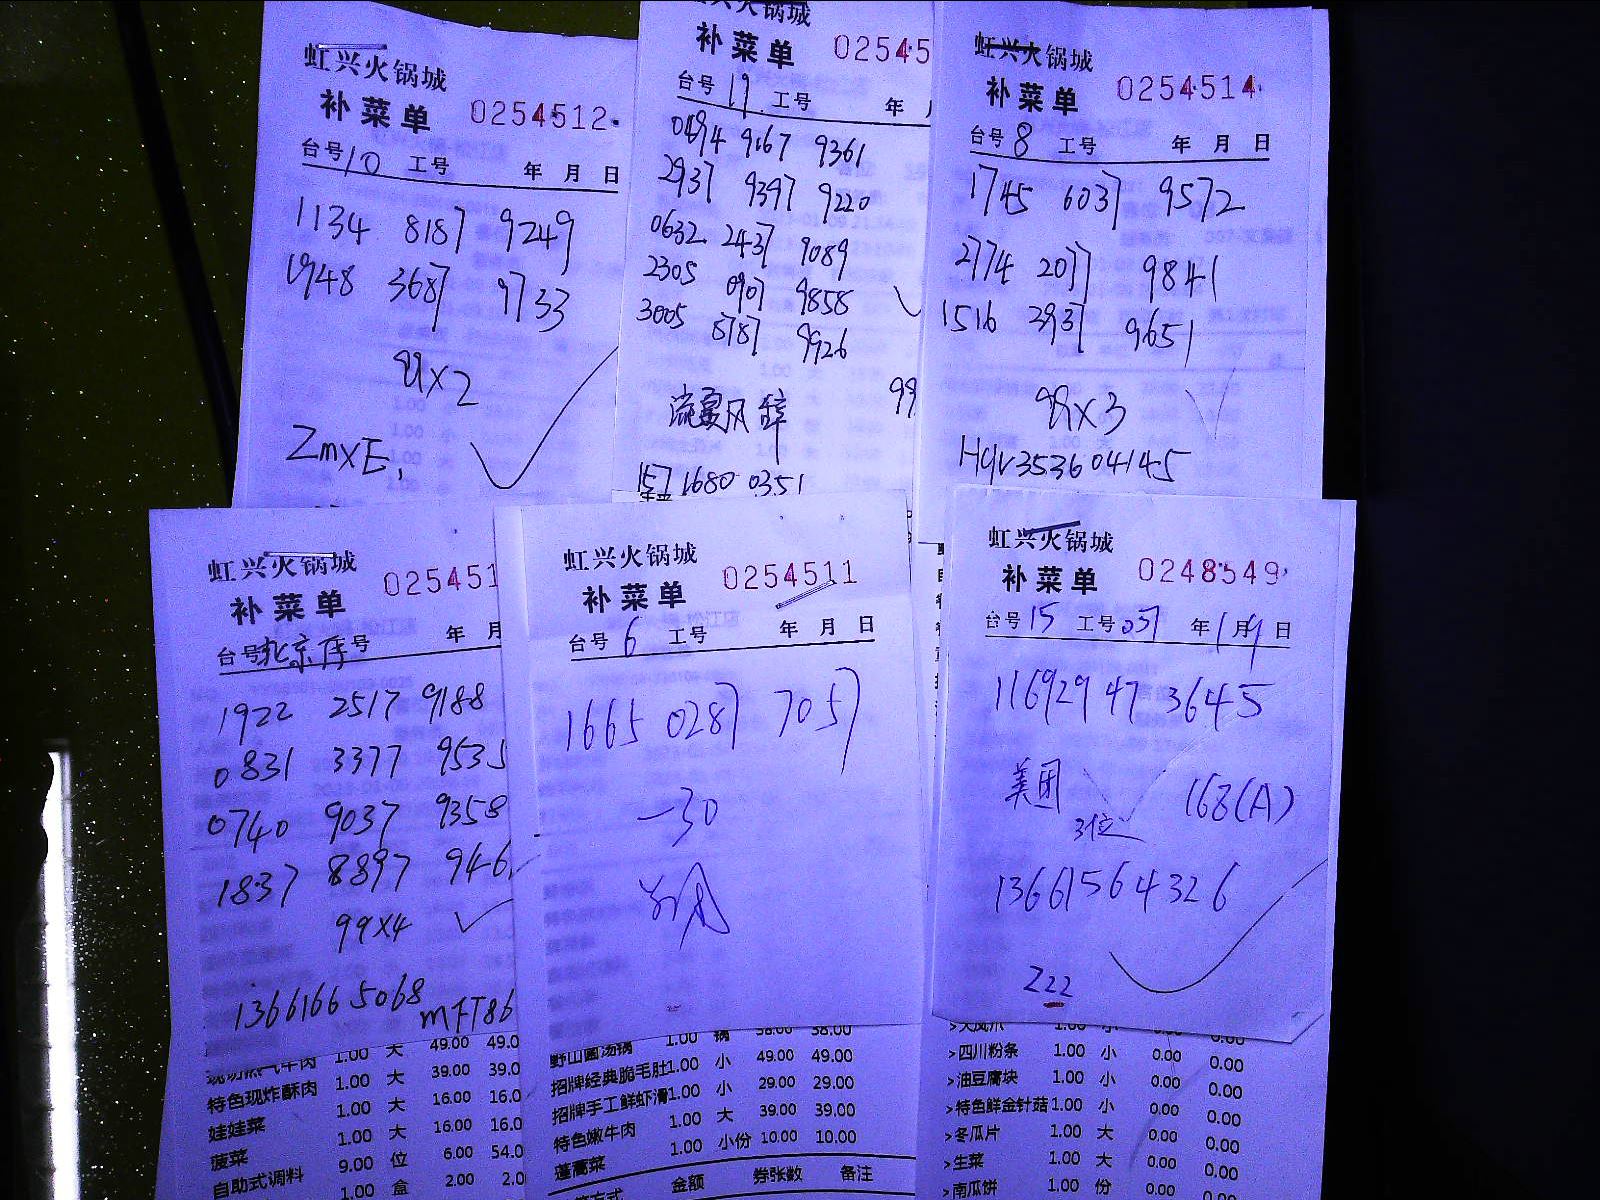 虹兴火锅城
补菜单 0254512
台号10 工号 年 月 日
1134 8187 9249
1948 3687 9733
99x2
ZmxE,
火锅城
补菜单 02545
台号 19 工号 年
0494 9167 9361
2937 9397 9220
0632 2437 9089
2305 0907 9858
3005 8787 9926
99
157 1680 0351
虹兴火锅城
补菜单 0254514
台号 8 工号 年 月 日
1745 6037 9572
2774 2077 9841
1516 2937 9651
99x3
Hqv3536 04145
虹兴火锅城
补菜单 025451
台号北京库号 年 月
1922 2517 9188
0831 3377 9535
0740 9037 9358
1837 8897 946
99x4
13661665068
mFT86
现切热气牛肉 1.00 大 49.00 49.0
特色现炸酥肉 1.00 大 39.00 39.0
娃娃菜 1.00 大 16.00 16.0
菠菜 1.00 大 16.00 16.0
自助式调料 9.00 位 6.00 54.0
1.00 盒 2.00 2.0
虹兴火锅城
补菜单 0254511
台号 6 工号 年 月 日
1665 0287 7057
-30
野山菌汤锅 1.00 锅 58.00 58.00
招牌经典脆毛肚 1.00 小 49.00 49.00
招牌手工鲜虾滑 1.00 小 29.00 29.00
特色嫩牛肉 1.00 大 39.00 39.00
蓬蒿菜 1.00 小份 10.00 10.00
方式 金额 券张数 备注
虹兴火锅城
补菜单 0248549
台号 15 工号 037 年 1 月 9 日
11692947 3645
美团 3位 168(A)
13661564326
Zzz
>大凤爪 1.00 小 0.00 0.00
>四川粉条 1.00 小 0.00 0.00
>油豆腐块 1.00 小 0.00 0.00
>特色鲜金针菇 1.00 小 0.00 0.00
>冬瓜片 1.00 大 0.00 0.00
>生菜 1.00 大 0.00 0.00
>南瓜饼 1.00 份 0.00 0.00